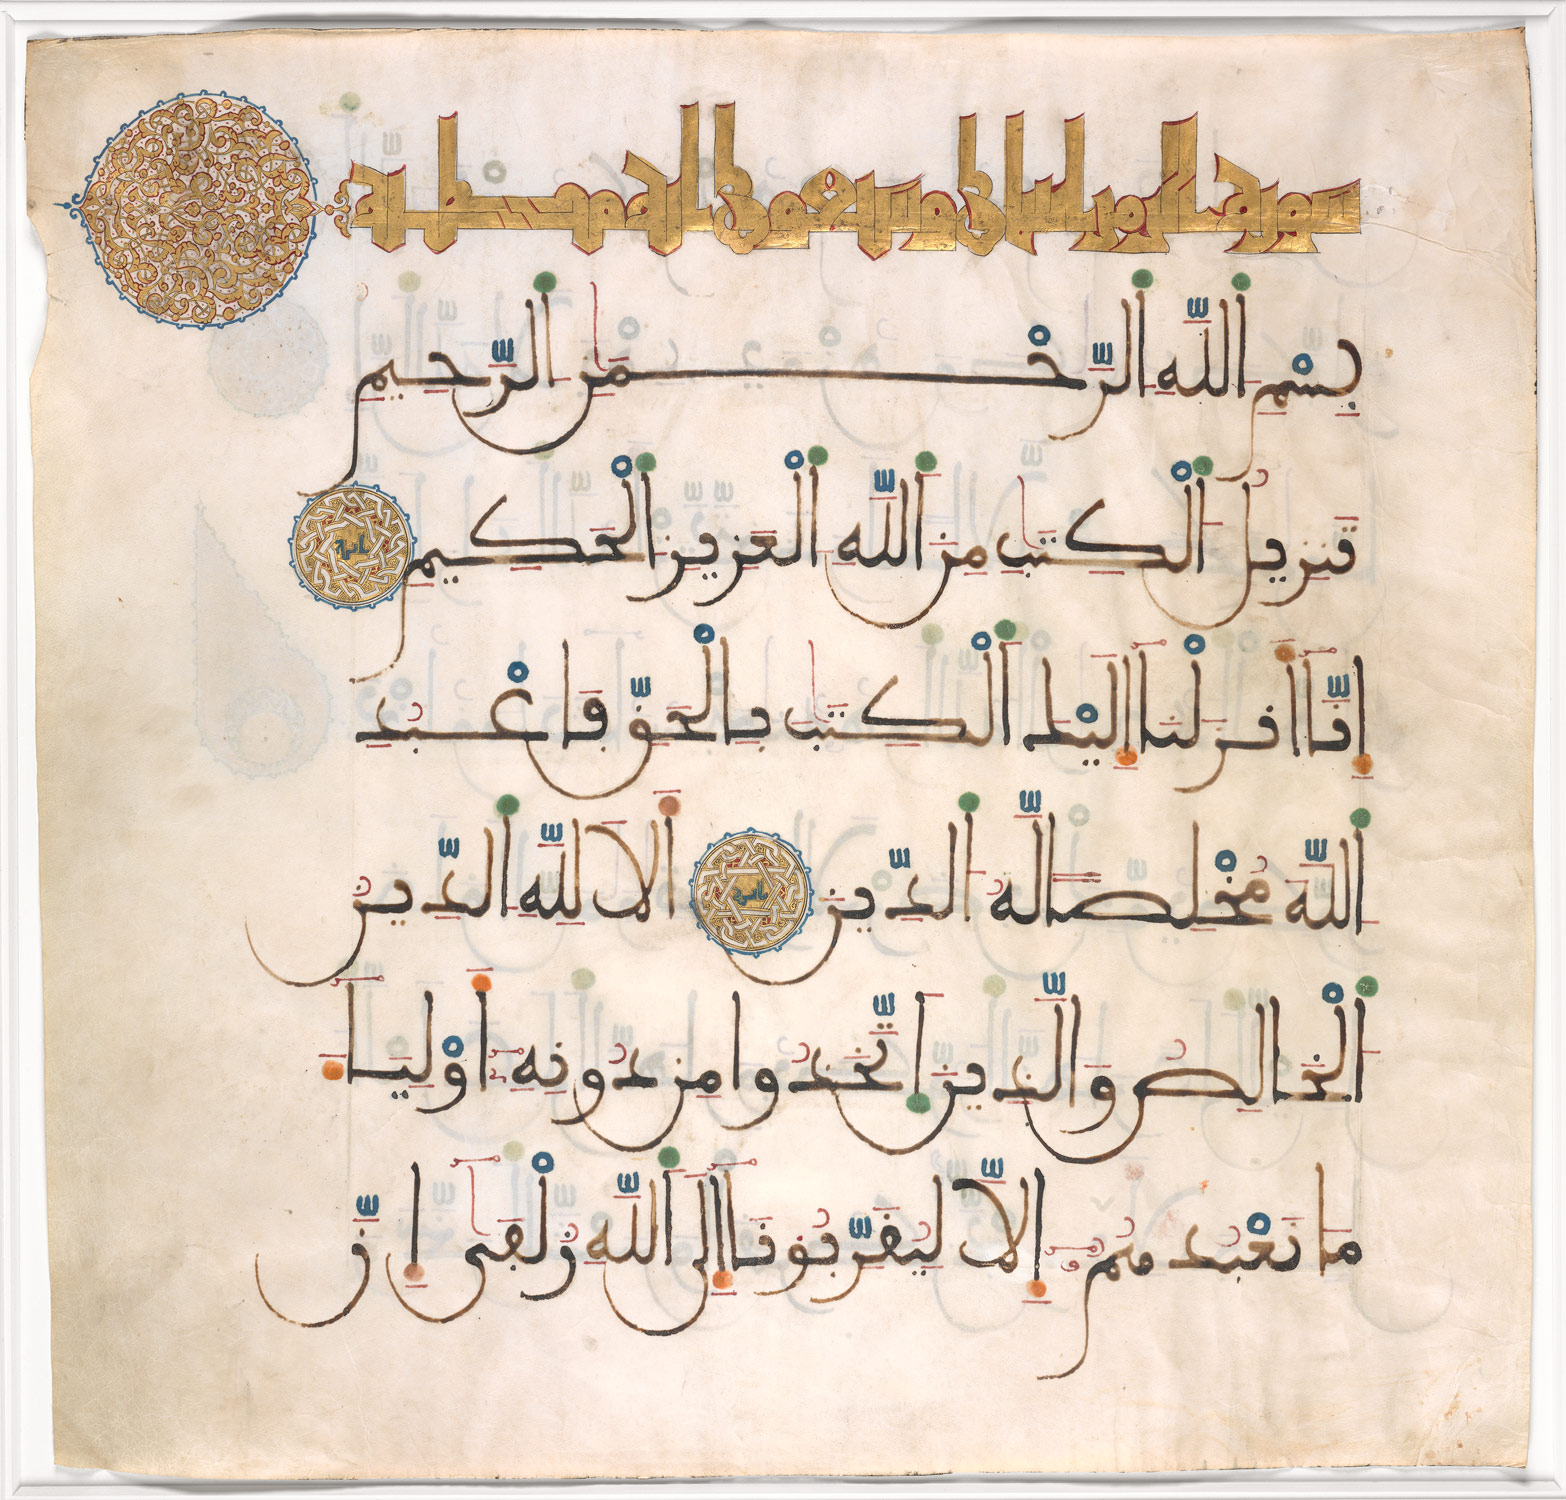 سورة الزمر وسبعون مكية
بِسْمِ اللَّهِ الرَّحْمَٰنِ الرَّحِيمِ
تَنزِيلُ الْكِتَٰبِ مِنَ اللَّهِ الْعَزِيزِ الْحَكِيمِ
إِنَّا أَنزَلْنَا إِلَيْكَ الْكِتَٰبَ بِالْحَقِّ فَاعْبُدِ
اللَّهَ مُخْلِصًا لَهُ الدِّينَ أَلَا لِلَّهِ الدِّينُ
الْخَالِصُ وَالَّذِينَ اتَّخَذُوا مِن دُونِهِ أَوْلِيَاءَ
مَا نَعْبُدُهُمْ إِلَّا لِيُقَرِّبُونَا إِلَى اللَّهِ زُلْفَىٰ إِنَّ